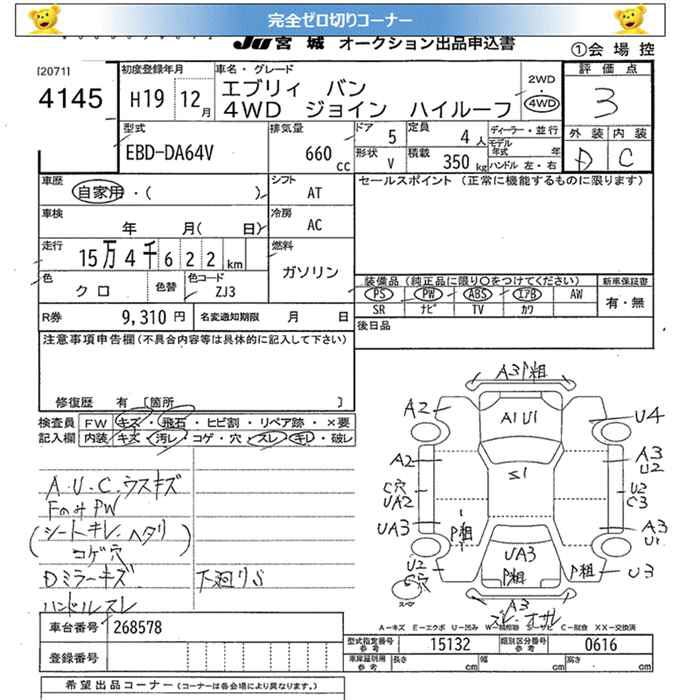 完全ゼロ切りコーナー
JU 宮城 オークション出品申込書
①会場控
[2071]
4145
初度登録年月
H19 12月
車名・グレード
エブリィ バン
4WD ジョイン ハイルーフ
2WD
・
4WD
評価点
3
外装 内装
D C
型式
EBD-DA64V
排気量
660 cc
ドア 5
定員 4 人
形状 V
積載 350 kg
ディーラー・並行
モデル年式 年
ハンドル 左・右
車歴
自家用・( )
シフト
AT
セールスポイント (正常に機能するものに限ります)
車検
年 月( 日)
冷房
AC
走行
15万4千622km
燃料
ガソリン
色
クロ
色替
色コード
ZJ3
装備品 (純正品に限り○をつけてください)
新車保証書
PS PW ABS エアB AW
SR ナビ TV カワ
有・無
R券 9,310 円
名変通知期限 月 日
後日品
注意事項申告欄(不具合内容等は具体的に記入して下さい)
修復歴 有 [箇所 ]
検査員記入欄
FW キズ・飛石・ヒビ割・リペア跡・×要
内装 キズ・汚レ・コゲ・穴・スレ・キレ・破レ
A・U・C、ウスキズ
FのみPW
(シートキレ、ヘタリ)
コゲ穴
Dミラーキズ
下廻りS
ハンドルスレ
A3 P粗
A2
A1U1
U4
A2
S1
A3
U2
C穴
UA2
U2
C3
UA3
P粗
A3
U1
UA3
P粗
P粗
U2
C穴
U3
A3
ズレ・オサレ
A-キズ E-エクボ U-凹み W-補修跡 S-サビ C-腐食 XX-交換済
車台番号 268578
登録番号
型式指定番号 参考 15132
類別区分番号 参考 0616
車庫証明用 参考 長さ cm 幅 cm 高さ cm
希望出品コーナー (コーナーは各会場により異なります。)